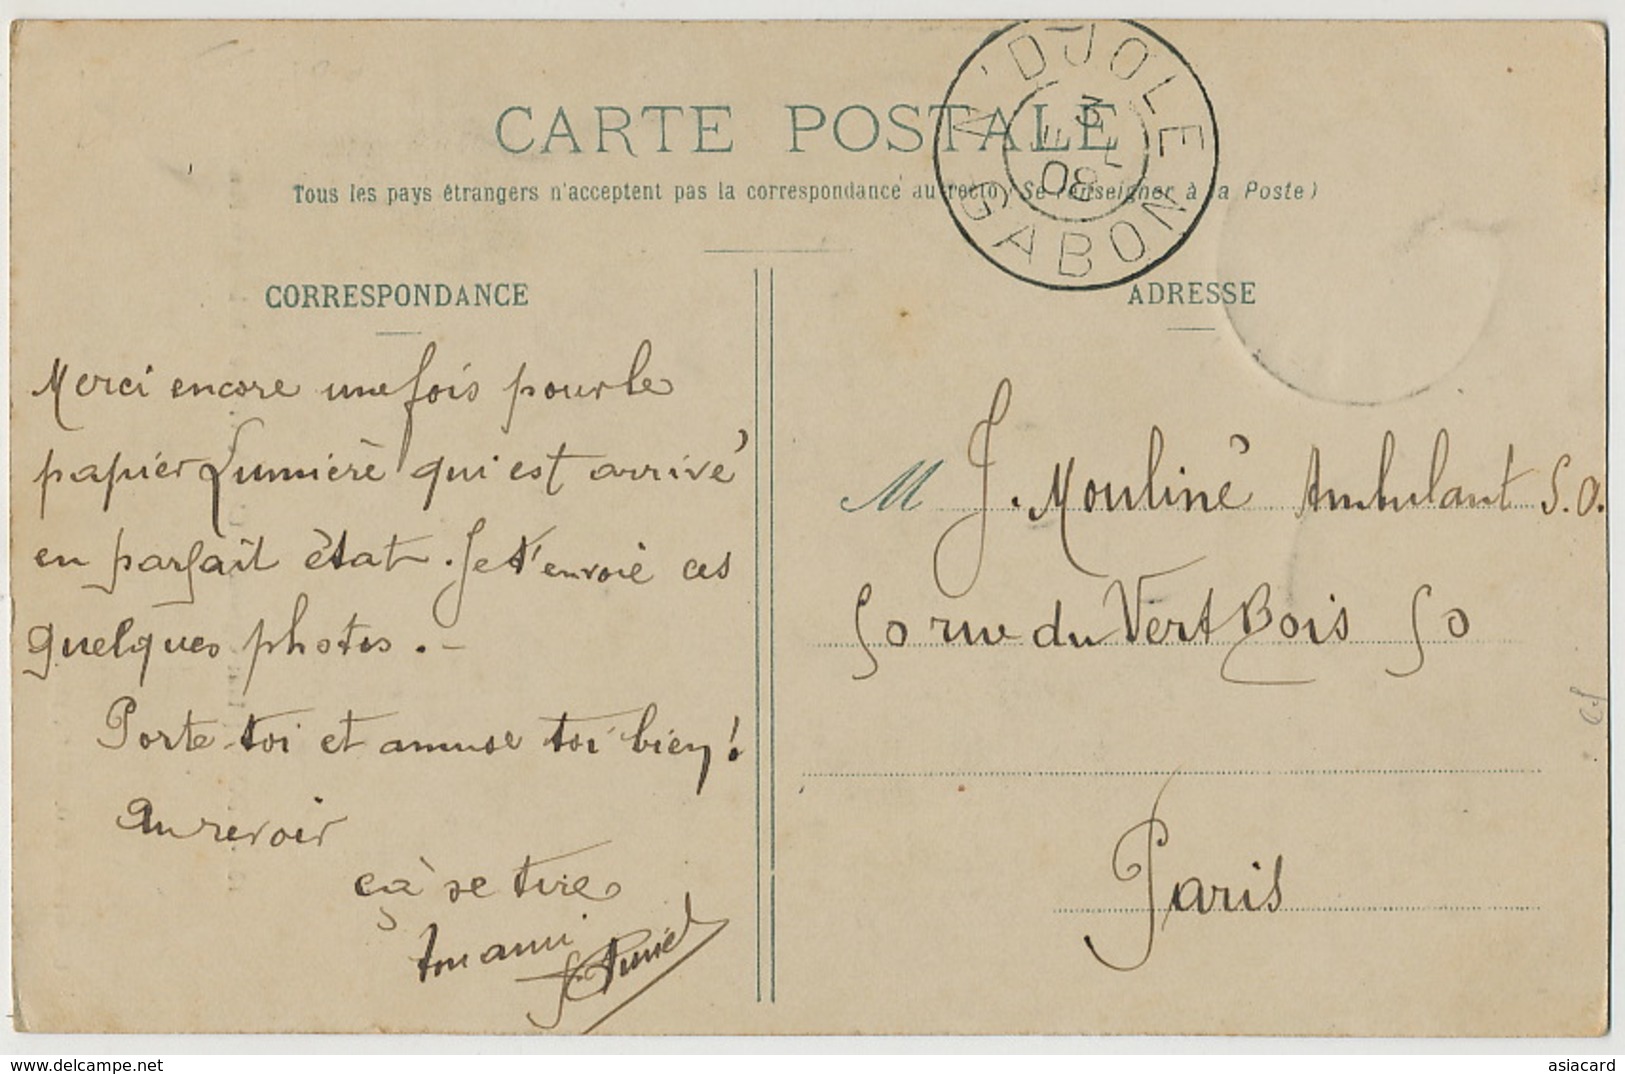 CARTE POSTALE
N'DJOLE
GABON
3
08
Tous les pays étrangers n'acceptent pas la correspondance au recto (Se renseigner à la Poste)
CORRESPONDANCE
Merci encore une fois pour le
papier Lumière qui est arrivé
en parfait état. Je t'envoie ces
quelques photos. -
Porte-toi et amuse toi bien!
Au revoir
çà se tire
Ton ami
ADRESSE
M J. Mouliné Ambulant S.O.
50 rue du Vert Bois 50
Paris
delcampe.net
asiacard